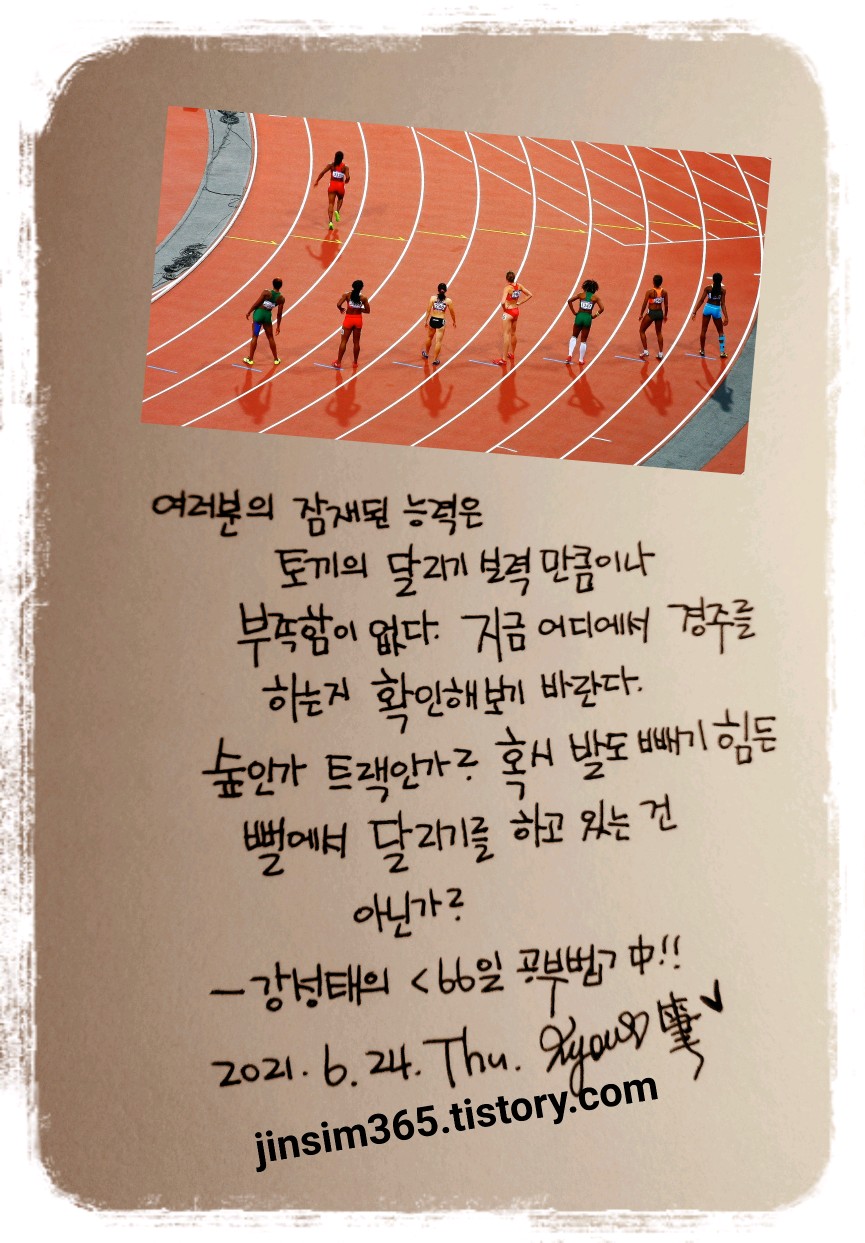 여러분의 잠재된 능력은
토끼의 달리기 능력 만큼이나
부족함이 없다. 지금 어디에서 경주를
하는지 확인해보기 바란다.
숲인가 트랙인가? 혹시 발도 빼기 힘든
뻘에서 달리기를 하고 있는 건
아닌가?
- 강성태의 <66일 공부법> 中!!
2021. 6. 24. Thu.
jinsim365.tistory.com